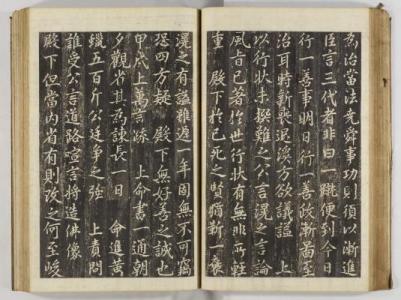 為治當法堯舜事功則須以漸進
臣言三代者非曰一蹴便到今日
行一善事明日行一善政漸啚至
治耳時新喪退溪方欲議謚 上
以行狀未撰難之公言滉之言論
風旨已著於世行狀有無非所輕
重 殿下於已死之賢猶靳一褒
滉之有謚雖遲一年固無不可竊
恐四方疑 殿下無好善之誠也
甲戌上萬言疏 上命書一通朝
夕觀省其為諫長一日 命進黃
蠟五百斤公廷爭之強 上責問
誰受公言道路喧言將造佛像
殿下但當內省有則改之何至峻